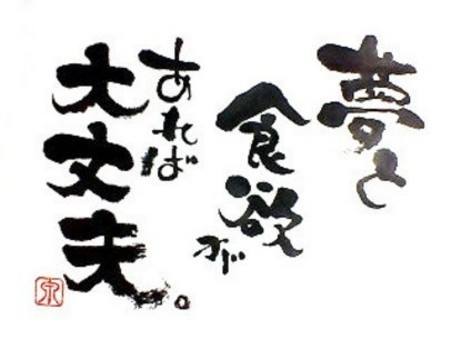 夢と
食欲が
あれば
大丈夫。